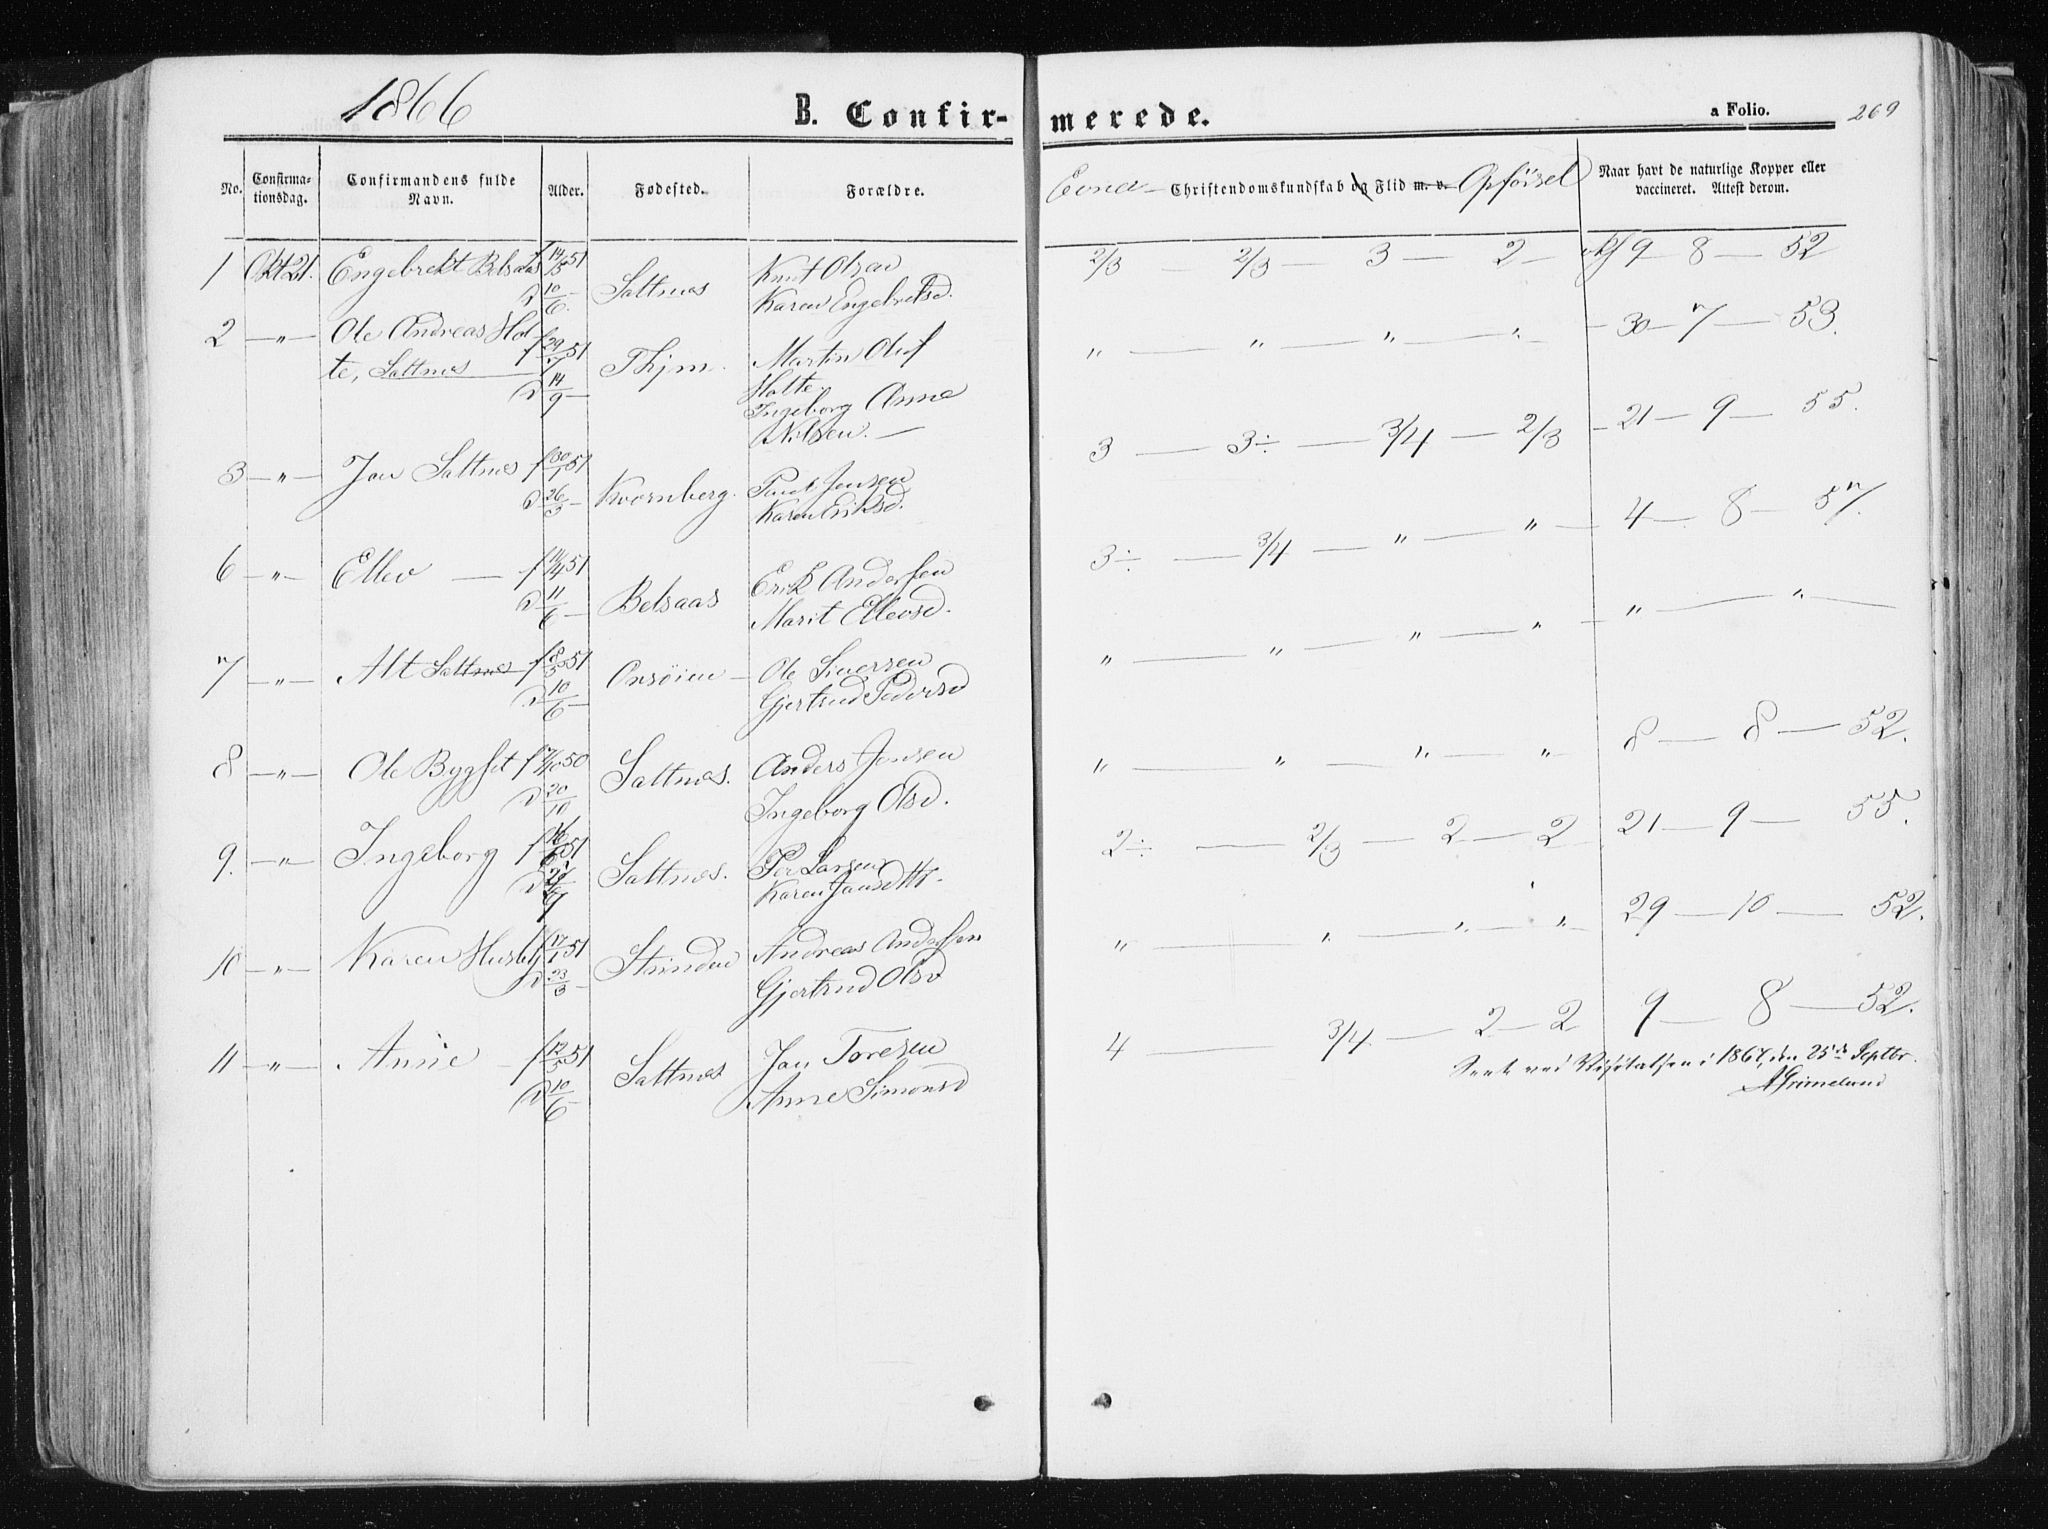 1866 B. Confirmerede. a Folio. 269
No. Confirmationsdag. Confirmandens fulde Navn. Alder. Fødested. Forældre. Evne Christendomskundskab og Flid m. v. Opförsel Naar havt de naturlige Kopper eller vaccineret. Attest derom.
1 Okt 21. Engebrekt Belsaas f 14/5 51 Saltnes Knut Olsen 2/3 — 2/3 — 3 — 2 — 9 — 8 — 52
D 10/6 Karen Engebretsd.
2 — " — Ole Andreas Hol- f 29/7 51 Thjm. Martin Oluf " — " — " — " — 30 — 7 — 53.
te, Saltnes D 14/9 Holte
Ingeborg Anne
Nilsen. —
3 — " — Jon Saltnes f 30/1 51 Kvernberg. Paul Jensen 3 — 3÷ — 3/4 — 2/3 — 21 — 9 — 55.
D 26/3 Karen Eriksd.
6 — " — Ellev — f 16/4 51 Belsaas Erik Andersen 3÷ — 3/4 — " — " — 4 — 8 — 57.
D 11/6 Marit Ellevsd.
7 — " — Alt Saltnes f 8/5 51 Onsöien — Ole Siversen " — " — " — " — " — "
D 10/6 Gjertrud Pedersd
8 — " — Ole Bygset f 7/10 50 Saltnes. Anders Jensen " — " — " — " 8 — 8 — 52.
D 20/10 Ingeborg Olsd.
9. — " — Ingeborg f 51 Saltnes. Per Larsen 2÷ — 2/3 — 2 — 2 21 — 9 — 55.
Karen Jansdtr.
10 — " — Karen Husby f 17/1 51 Strinden Andreas Andersen " — " — " — " 29 — 10 — 52.
D 23/3 Gjertrud Olsd
11 — " — Anne — f 12/5 51 Saltnes Jon Toresen 4 — 3/4 — 2 — 2 9 — 8 — 52.
D 10/6 Anne Simonsd
Seet ved Visitatsen i 1867, den 25de Septbr.
A Grimelund